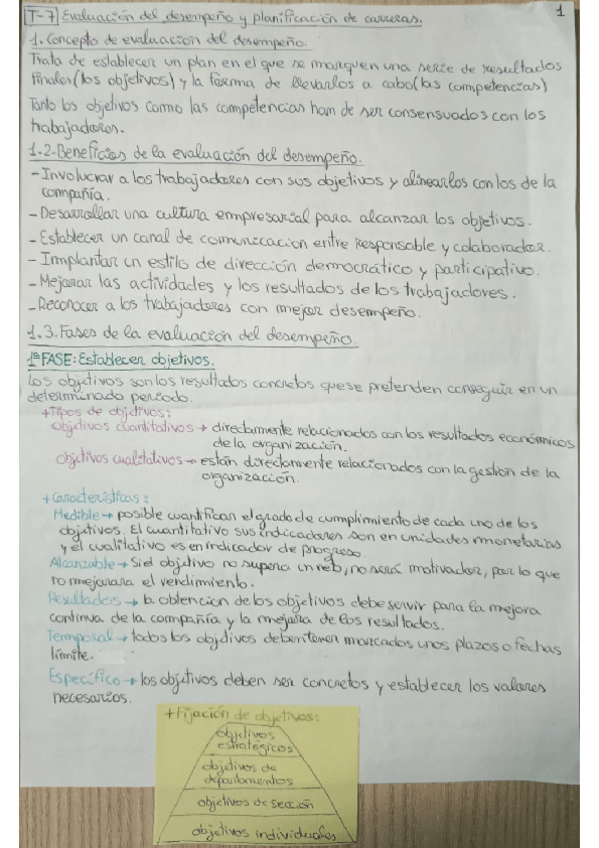 T-7 Evaluación del desempeño y planificación de carreras.
1
1. Concepto de evaluación del desempeño.
Trata de establecer un plan en el que se marquen una serie de resultados
finales (los objetivos) y la forma de llevarlos a cabo (las competencias)
Tanto los objetivos como las competencias han de ser consensuados con los
trabajadores.
1.2. Beneficios de la evaluación del desempeño.
- Involucrar a los trabajadores con sus objetivos y alinearlos con los de la
compañía.
- Desarrollar una cultura empresarial para alcanzar los objetivos.
- Establecer un canal de comunicacion entre responsable y colaborador.
- Implantar un estilo de dirección democrático y participativo.
- Mejorar las actividades y los resultados de los trabajadores.
- Reconocer a los trabajadores con mejor desempeño.
1.3. Fases de la evaluación del desempeño
1ª FASE: Establecer objetivos.
Los objetivos son los resultados concretos que se pretenden conseguir en un
determinado periodo.
+ Tipos de objetivos:
Objetivos cuantitativos → directamente relacionados con los resultados económicos
de la organización.
Objetivos cualitativos → están directamente relacionados con la gestión de la
organización.
+ Características:
Medible → posible cuantifican el grado de cumplimiento de cada uno de los
objetivos. El cuantitativo sus indicadores son en unidades monetarias
y el cualitativo es en indicador de progreso.
Alcanzable → Si el objetivo no supera un reto, no será motivador, por lo que
no mejorara el rendimiento.
Resultados → la obtencion de los objetivos debe servir para la mejora
continua de la compañía y la mejora de los resultados.
Temporal → todos los objetivos deben tener marcados unos plazos o fechas
límite.
Específico → los objetivos deben ser concretos y establecer los valores
necesarios.
+ Fijación de objetivos:
objetivos
estratégicos
objetivos de
departamentos
objetivos de sección
objetivos individuales